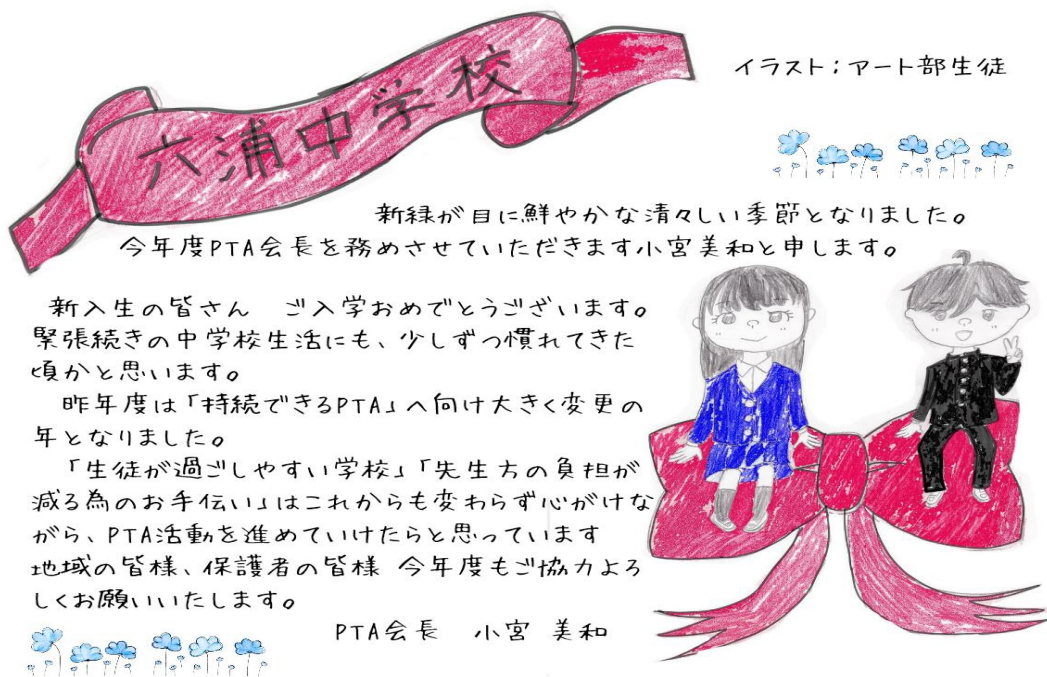 六浦中学校
イラスト:アート部生徒
新緑が目に鮮やかな清々しい季節となりました。
今年度PTA会長を務めさせていただきます小宮美和と申します。
新入生の皆さん　ご入学おめでとうございます。
緊張続きの中学校生活にも、少しずつ慣れてきた
頃かと思います。
昨年度は「持続できるPTA」へ向け大きく変更の
年となりました。
「生徒が過ごしやすい学校」「先生方の負担が
減る為のお手伝い」はこれからも変わらず心がけな
がら、PTA活動を進めていけたらと思っています
地域の皆様、保護者の皆様 今年度もご協力よろ
しくお願いいたします。
PTA会長　小宮 美和